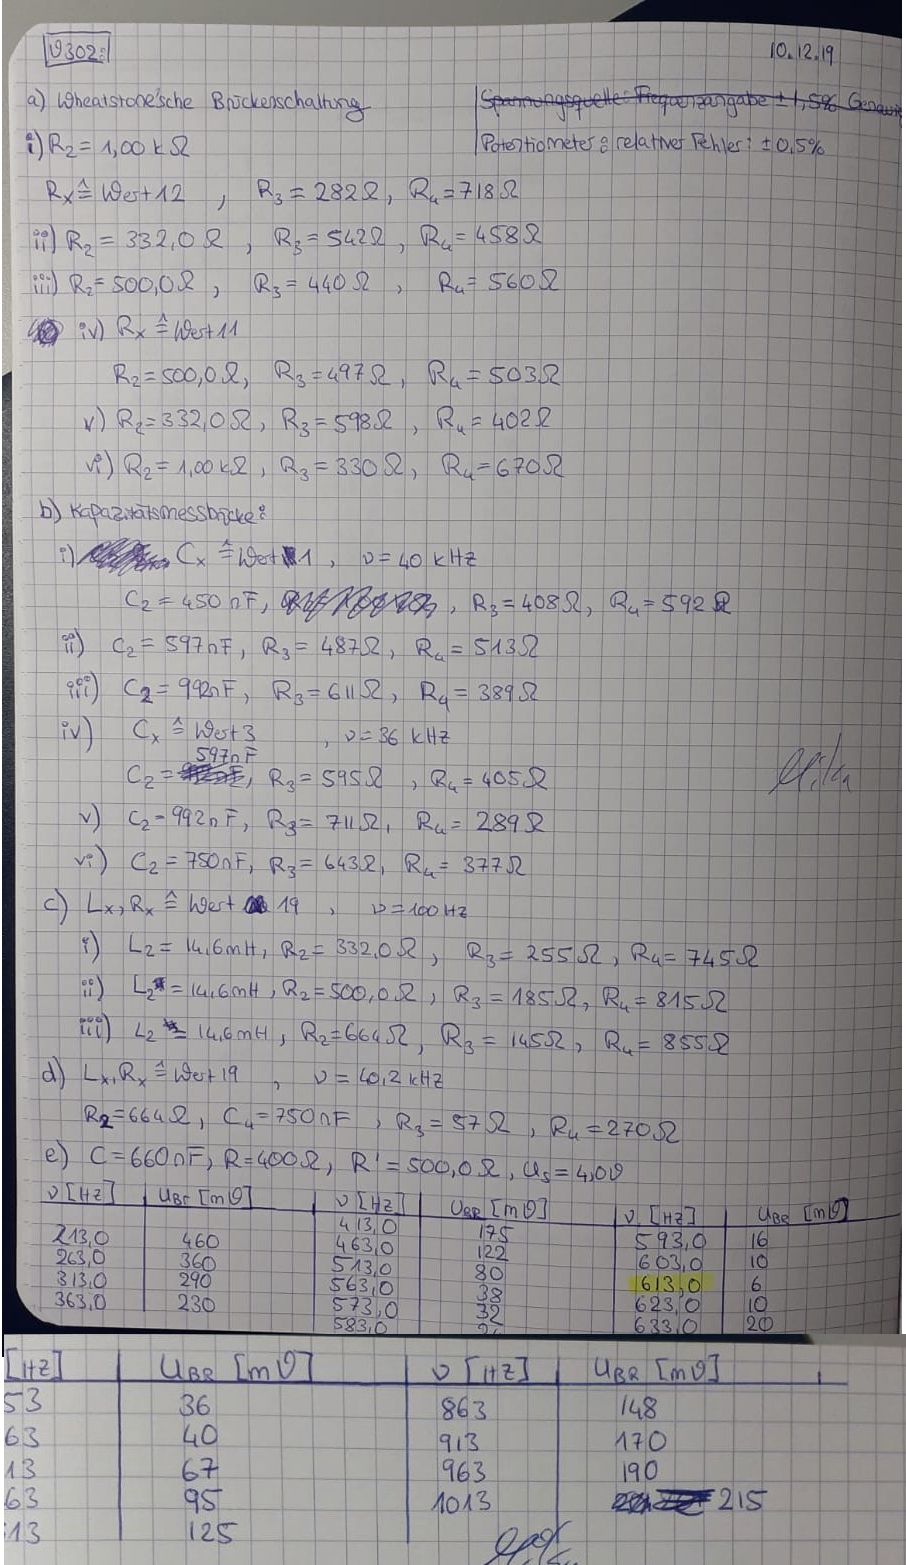 V302: 10.12.19
a) Wheatstone'sche Brückenschaltung Spannungsquelle: Frequenzangabe ± 1,5%
i) R₂ = 1,00 kΩ Potentiometer: relativer Fehler: ± 0,5%
Rₓ ≙ Wert 12 , R₃ = 282Ω, R₄ = 718Ω
ii) R₂ = 332,0 Ω , R₃ = 542Ω , R₄ = 458Ω
iii) R₂ = 500,0Ω , R₃ = 440Ω , R₄ = 560Ω
iv) Rₓ ≙ Wert 11
R₂ = 500,0Ω, R₃ = 497Ω , R₄ = 503Ω
v) R₂ = 332,0Ω, R₃ = 598Ω , R₄ = 402Ω
vi) R₂ = 1,00 kΩ , R₃ = 330Ω, R₄ = 670Ω
b) Kapazitätsmessbrücke:
i) Cₓ ≙ Wert 1 , ν = 40 kHz
C₂ = 450 nF, , R₃ = 408Ω, R₄ = 592Ω
ii) C₂ = 597nF, R₃ = 487Ω, R₄ = 513Ω
iii) C₂ = 992nF, R₃ = 611Ω, R₄ = 389Ω
iv) Cₓ ≙ Wert 3 , ν = 36 kHz
597nF
C₂ = , R₃ = 595Ω , R₄ = 405Ω
v) C₂ = 992nF, R₃ = 711Ω, R₄ = 289Ω
vi) C₂ = 750nF, R₃ = 643Ω, R₄ = 377Ω
c) Lₓ, Rₓ ≙ Wert 19 , ν = 100 Hz
i) L₂ = 14,6mH, R₂ = 332,0Ω , R₃ = 255Ω, R₄ = 745Ω
ii) L₂ = 14,6mH, R₂ = 500,0Ω , R₃ = 185Ω, R₄ = 815Ω
iii) L₂ = 14,6mH, R₂ = 664Ω, R₃ = 145Ω, R₄ = 855Ω
d) Lₓ, Rₓ ≙ Wert 19 , ν = 40,2 kHz
R₂ = 664Ω, C₄ = 750nF , R₃ = 57Ω , R₄ = 270Ω
e) C = 660nF, R = 400Ω, R' = 500,0Ω, Uₛ = 4,0V
ν [Hz] U_Br [mV] ν [Hz] U_BR [mV] ν [Hz] U_BR [mV]
413,0 175
213,0 460 463,0 122 593,0 16
263,0 360 513,0 80 603,0 10
313,0 290 563,0 38 613,0 6
363,0 230 573,0 32 623,0 10
583,0 633,0 20
[Hz] U_BR [mV] ν [Hz] U_BR [mV]
53 36 863 148
63 40 913 170
13 67 963 190
63 95 1013 215
13 125